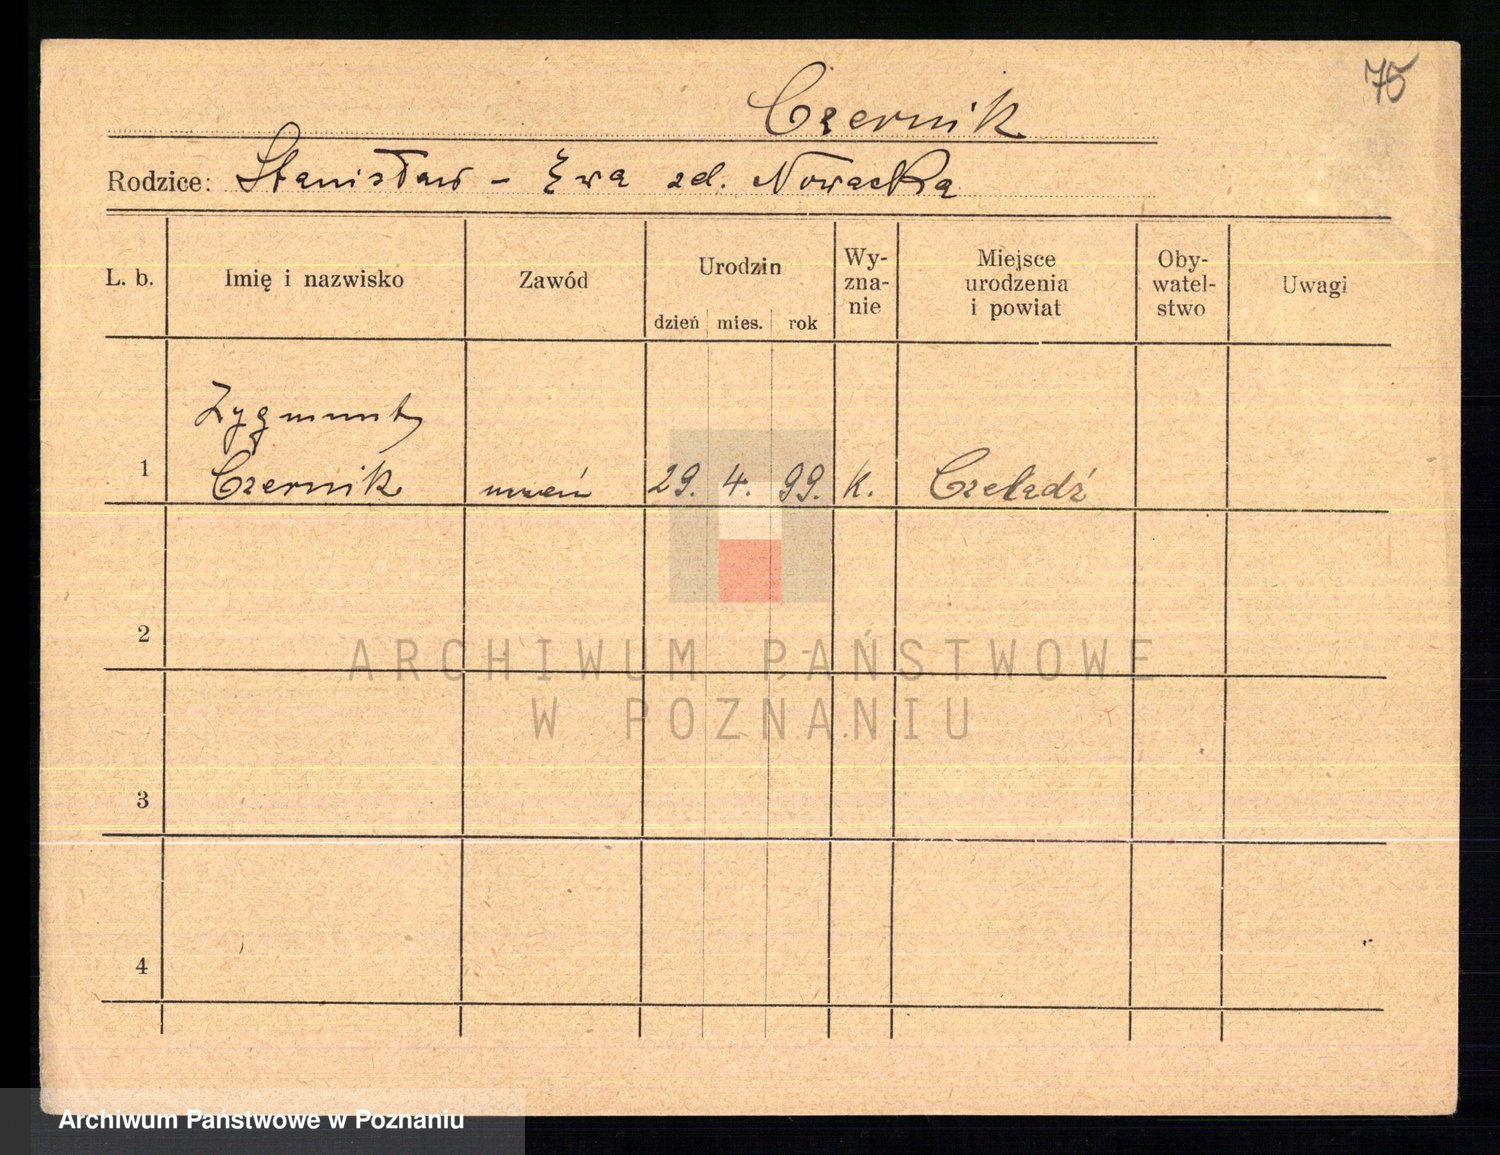 75
Czernik
Rodzice: Stanisław - Ewa zd. Nowacka
L. b.
Imię i nazwisko
Zawód
Urodzin
dzień mies. rok
Wy-
zna-
nie
Miejsce
urodzenia
i powiat
Oby-
watel-
stwo
Uwagi
Zygmunt
1 Czernik uczeń 29. 4. 99. K. Czeladź
2
3
4
ARCHIWUM PAŃSTWOWE
W POZNANIU
Archiwum Państwowe w Poznaniu